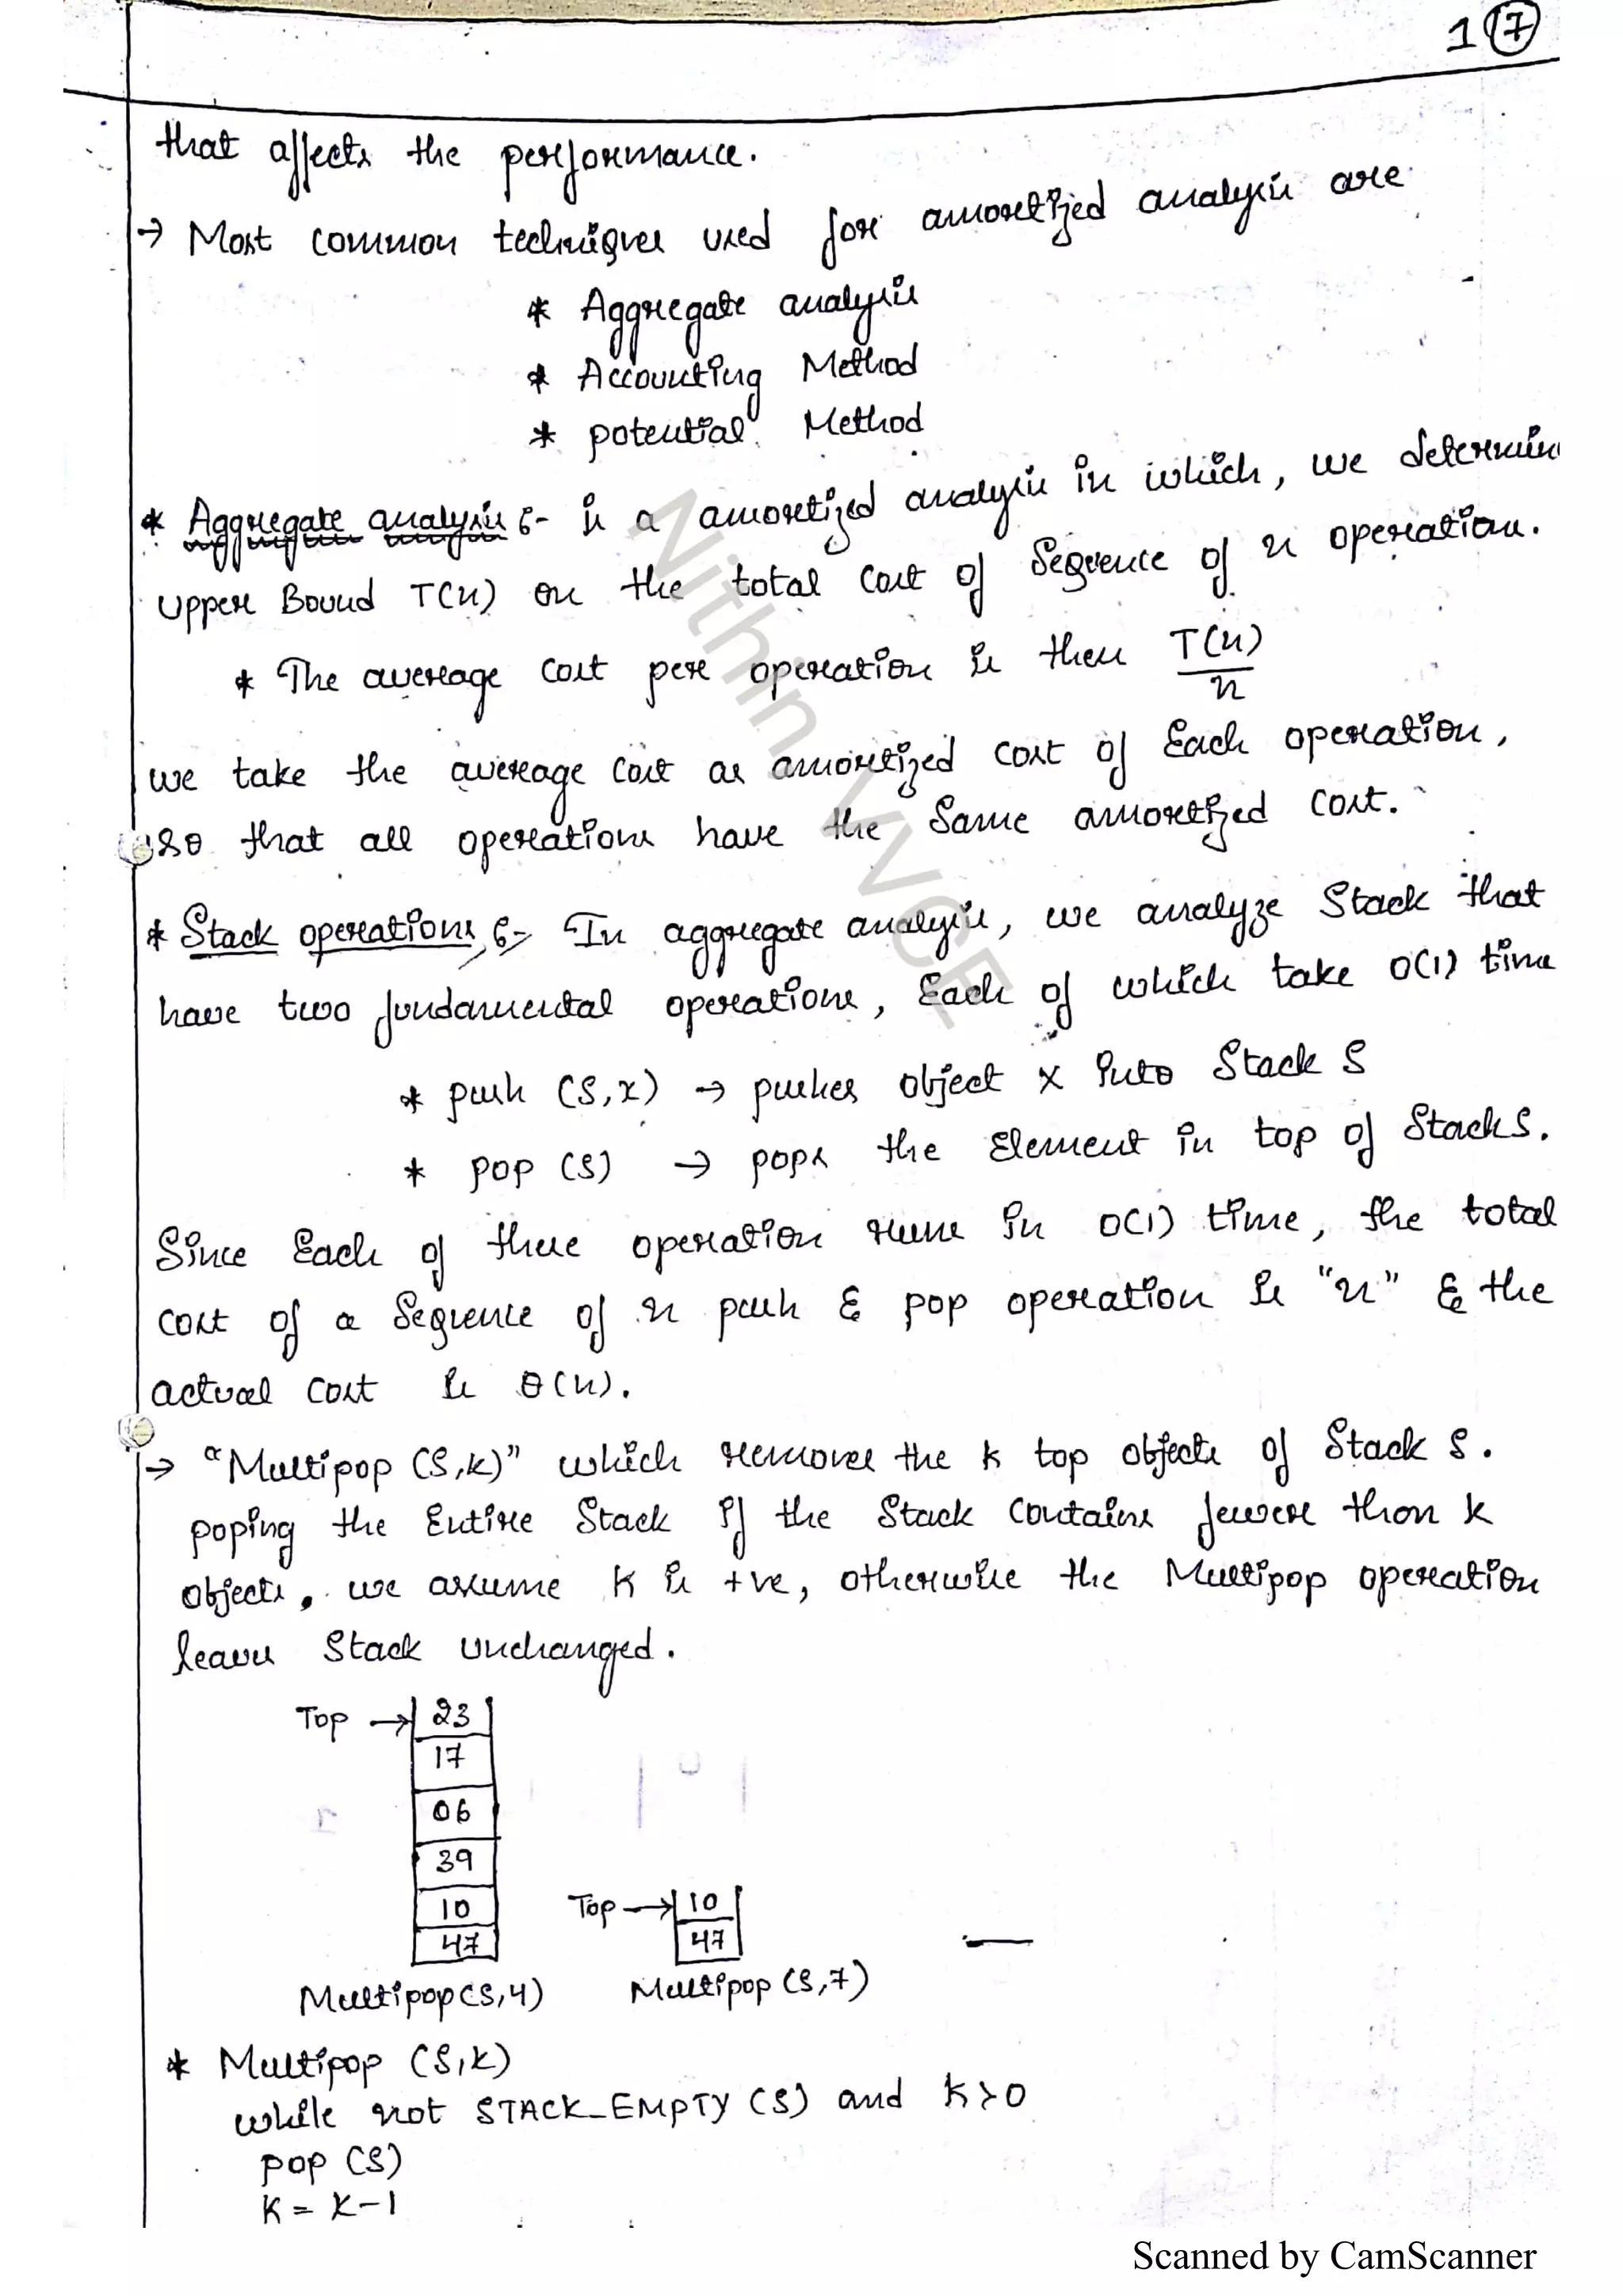 1 7
that affects the performance.
→ Most common techniques used for amortized analysis are
* Aggregate analysis
* Accounting Method
* potential Method
* Aggregate analysis :- is a amortized analysis in which, we determine
upper Bound T(n) on the total cost of sequence of n operation.
* The average cost per operation is then T(n)/n
we take the average cost as amortized cost of Each operation,
so that all operations have the same amortized cost.
* Stack operations :- In aggregate analysis, we analyze Stack that
have two fundamental operations, Each of which take O(1) time
* push (S,x) → pushes object x into Stack S
* pop (S) → pops the Element in top of Stack S.
Since Each of these operation runs in O(1) time, the total
cost of a Sequence of n push & pop operation is "n" & the
actual cost is θ(n).
→ "Multipop (S,k)" which removes the k top objects of Stack S.
poping the Entire Stack if the Stack Contains fewer than k
objects. we assume K is +ve, otherwise the Multipop operation
leaves Stack unchanged.
Top → 23
17
06
39
10
47
Top → 10
47
—
Multipop(S,4)
Multipop (S,7)
* Multipop (S,k)
while not STACK_EMPTY (S) and k>0
pop (S)
K = K-1
Nithin VVCE
Scanned by CamScanner